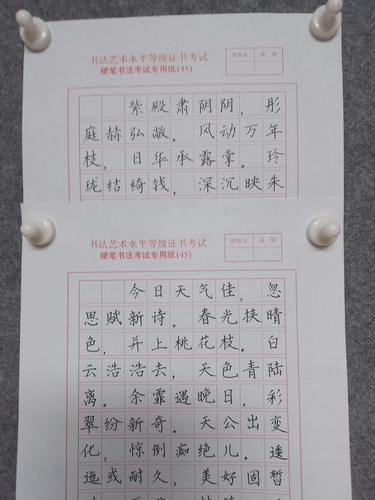 书法艺术水平等级证书考试
硬笔书法考试专用纸(45)
评卷人 成绩
紫殿肃阴阴，彤
庭赫弘敞。风动万年
枝，日华承露掌。玲
珑结绮钱，深沉映朱
书法艺术水平等级证书考试
硬笔书法考试专用纸(45)
评卷人 成绩
今日天气佳，忽
思赋新诗。春光挟晴
色，并上桃花枝。白
云浩浩去，天色青陆
离。余霏遇晚日，彩
翠纷新奇。天公出变
化，惊倒痴绝儿。逶
迤或耐久，美好固暂